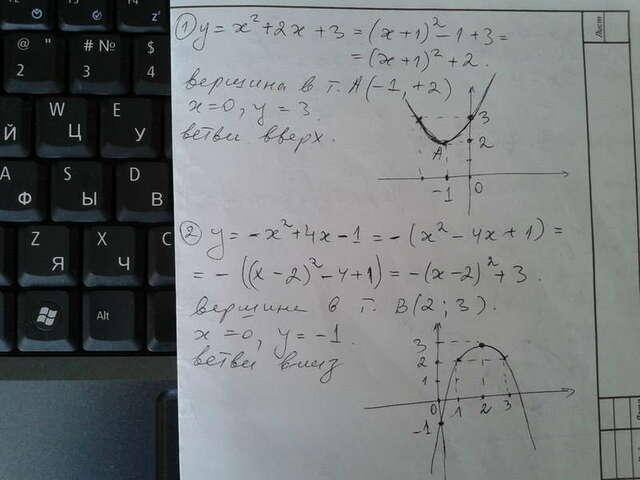 ① y = x² + 2x + 3 = (x+1)² - 1 + 3 =
= (x+1)² + 2.
вершина в т. A(-1, +2)
x=0, y = 3.
ветви вверх.
3
2
A
-1
0
② y = -x² + 4x - 1 = -(x² - 4x + 1) =
= -((x-2)² - 4 + 1) = -(x-2)² + 3.
вершина в т. B(2; 3).
x=0, y = -1.
ветви вниз
3
2
1
0
1
2
3
-1
Лист
@ 2
# № 3
$ ; 4
W Ц
E У
Й
A Ф
S Ы
D В
Z Я
X Ч
C С
Alt